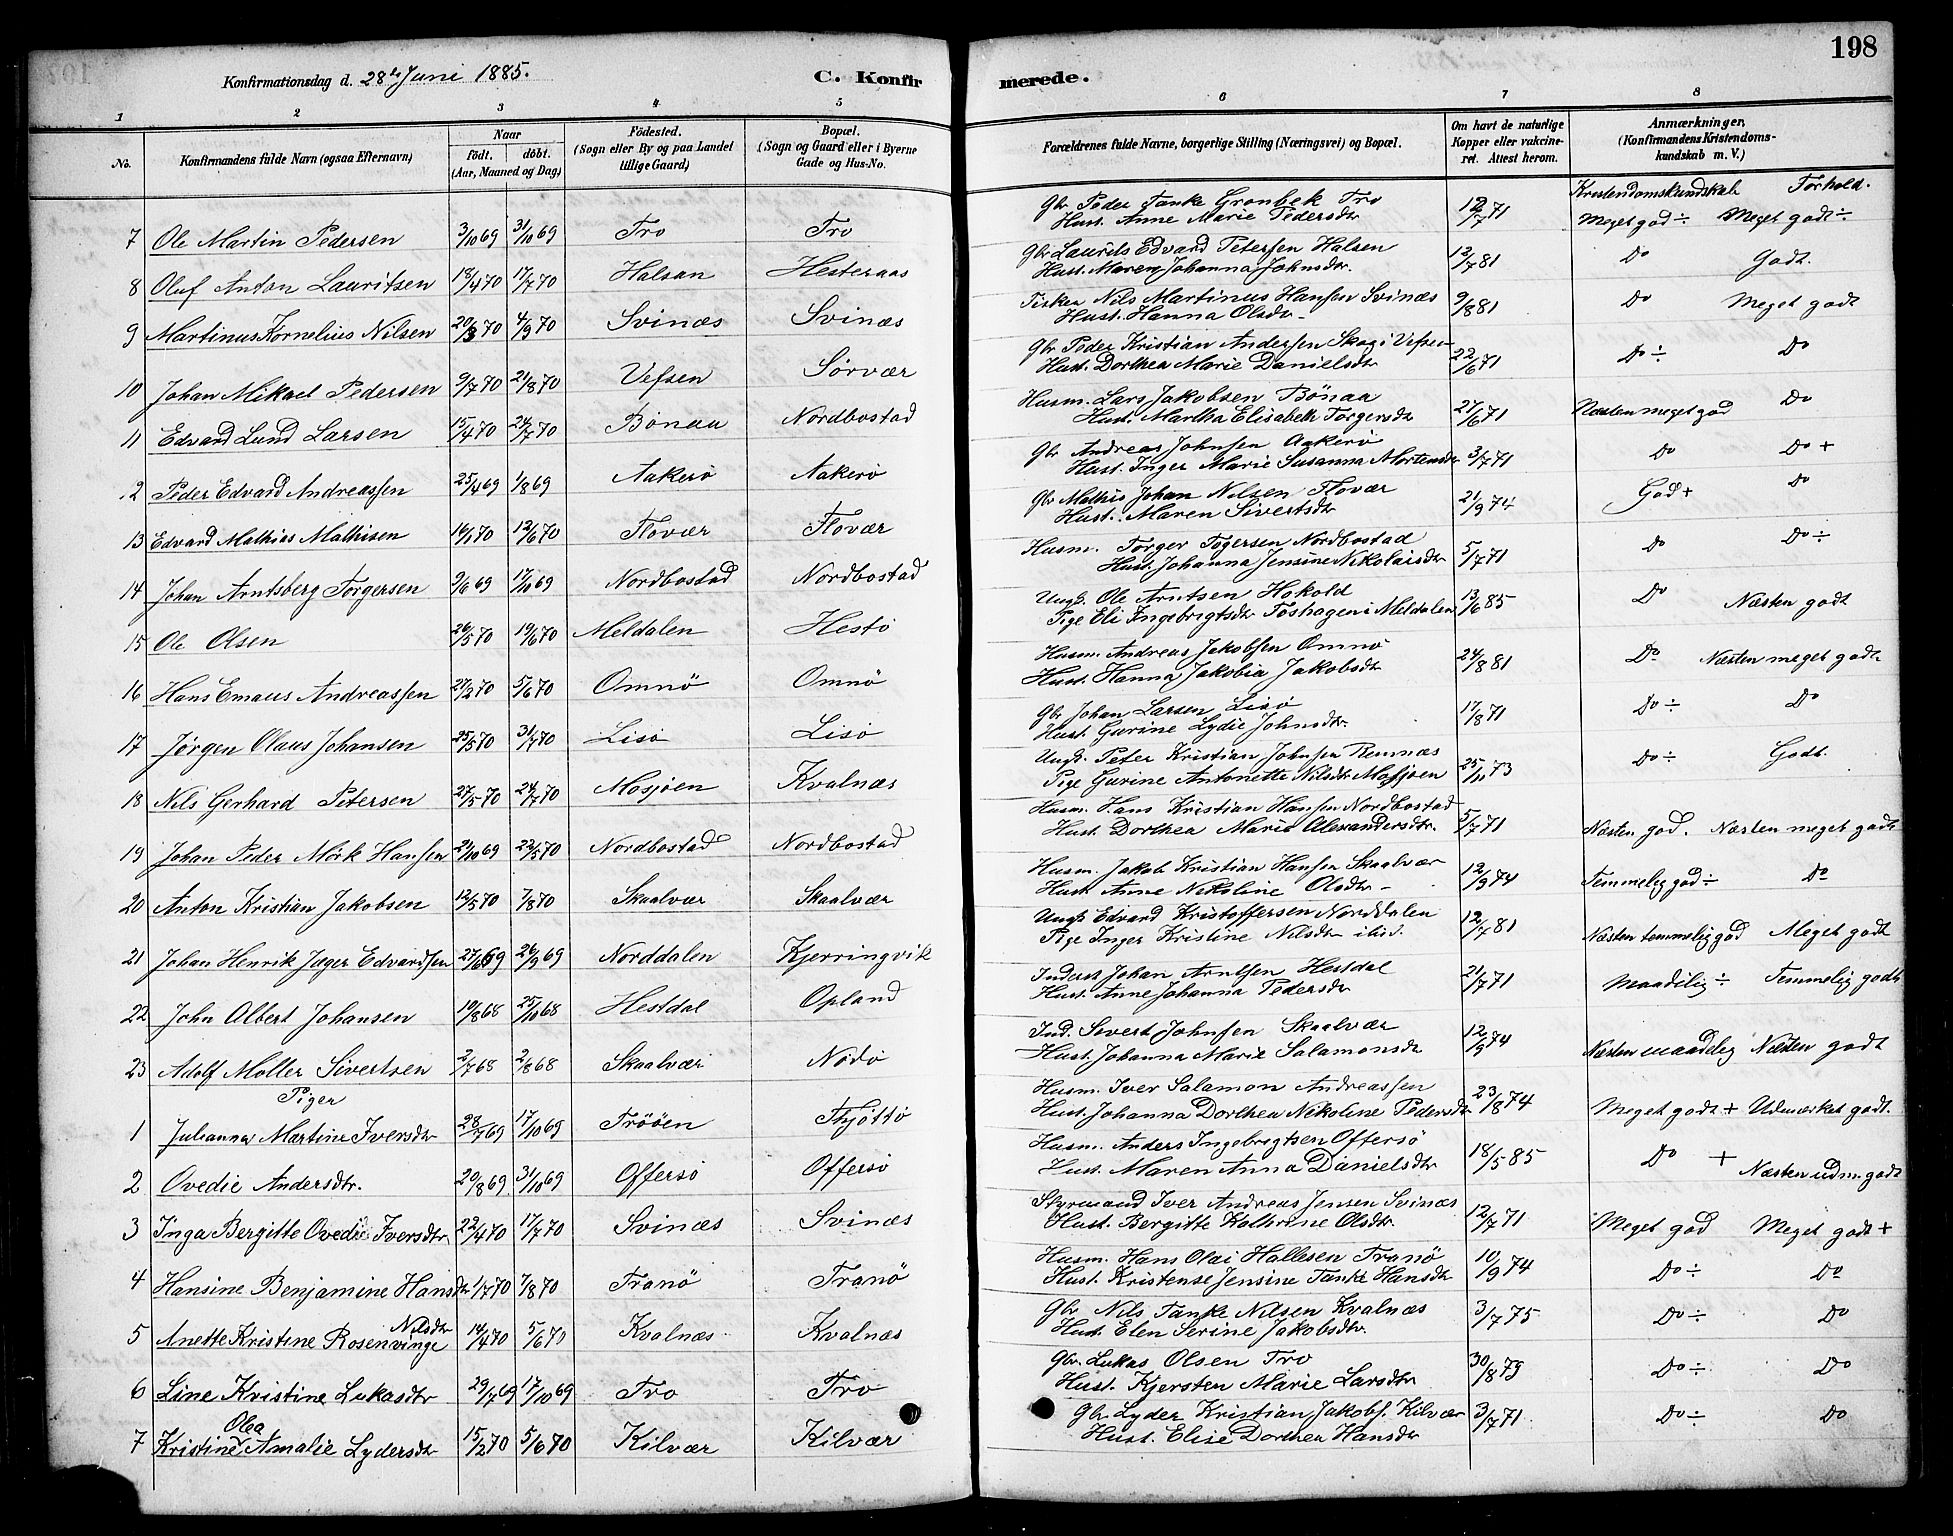 198
Konfirmationsdag d. 28de Juni 1885.
C. Konfirmerede.
1 2 3 4 5 6 7 8
No. Konfirmandens fulde Navn (ogsaa Efternavn) Naar födt. döbt. (Aar, Maaned og Dag) Födested. (Sogn eller By og paa Landet tillige Gaard) Bopæl. (Sogn og Gaard eller i Byerne Gade og Hus-No. Forældrenes fulde Navne, borgerlige Stilling (Næringsvei) og Bopæl. Om havt de naturlige Kopper eller vakcineret. Attest herom. Anmærkninger, (Konfirmandens Kristendomskundskab m. V.)
Kristendomskundskab Forhold.
7 Ole Martin Pedersen 3/10 69 31/10 69 Tro Tro Gbr Peder Tanke Grønbek Tro 12/7 71 Meget god ÷ Meget godt ÷
Hust. Anne Marie Pedersdtr
8 Oluf Anton Lauritsen 18/4 70 17/7 70 Halsan Hesteraas Gbr Laurits Edvard Petersen Halsen 12/7 81 Do Godt.
Hust. Maren Johanna Johnsdtr.
9 Martinus Kornelius Nilsen 20/3 70 4/9 70 Svinæs Svinæs Fisker Nils Martinus Hansen Svinæs 9/8 81 Do Meget godt
Hust. Hanna Olsdr -
10 Johan Mikael Pedersen 9/7 70 21/8 70 Vefsen Sørvær Gbr Peder Kristian Andersen Skog i Vefsen 22/6 71 Do ÷ Do
Hust. Dorthea Marie Danielsdtr
11 Edvard Lund Larsen 15/4 70 24/7 70 Bönaa Nordbostad Husm. Lars Jakobsen Bönaa 27/6 71 Næsten meget god Do
Hust. Martha Elisabeth Torgersdtr
.2 Peder Edvard Andreassen 25/4 69 1/8 69 Aakerö Aakerö Gbr Andreas Johnsen Aakerö 3/7 71 Do Do +
Hust. Inger Marie Susanna Mortensdtr
13 Edvard Mathias Mathisen 16/1 70 12/6 70 Flovær Flovær Gbr Mathis Johan Nilsen Flovær 21/9 74 God + Do
Hust. Maren Sivertsdtr
14 Johan Arntsberg Torgersen 9/6 69 17/10 69 Nordbostad Nordbostad Husm. Torger Togersen Nordbostad 5/7 71 Do Do ÷
Hust. Johanna Jensine Nikolaisdtr
15 Ole Olsen 26/5 70 19/6 70 Meldalen Hestö Ungk. Ole Arntsen Hokold 13/6 85 Do Næsten godt
Pige Eli Ingebrigtsdtr Foshagen i Meldalen
16 Hans Emaus Andreassen 27/2 70 5/6 70 Omnö Omnö Husm. Andreas Jakobsen Omnö 24/8 81 Do Næsten meget godt
Hust. Hanna Jakobia Jakobsdtr
17 Jørgen Olaus Johansen 25/5 70 31/7 70 Lisö Lisö Gbr Johan Larsen Lisö 17/8 71 Do ÷ Do
Hust. Gurine Lydie Johnsdtr.
18 Nils Gerhard Petersen 27/5 70 24/7 70 Mosjöen Kvalnæs Ungk. Peter Kristian Johnsen Remnæs 25/11 73 Do ÷ Godt
Pige Gurine Antonette Nilsdtr Mosjøen
19 Johan Peder Mørk Hansen 24/10 69 22/5 70 Nordbostad Nordbostad Husm. Hans Kristian Hansen Nordbostad 5/7 71 Næsten god. Næsten meget godt
Hust. Dorthea Marie Alexandersdtr.
20 Anton Kristian Jakobsen 12/5 70 7/8 70 Skaalvær Skaalvær Husm. Jakob Kristian Hansen Skaalvær 12/9 74 Temmelig god ÷ Do
Hust Anne Nikoline Olsdtr -
21 Johan Henrik Jæger Edvardsen 27/6 69 26/9 69 Norddalen Kjerringvik Ungk Edvard Kristoffersen Norddalen 12/7 81 Næsten temmelig god Meget godt
Pige Inger Kristine Nilsdtr ibid.
22 John Albert Johansen 19/8 68 25/10 68 Hestdal Opland Inderst Johan Arntsen Hestdal 21/7 71 Maadelig ÷ Temmelig godt
Hust. Anne Johanna Pedersdtr
23 Adolf Møller Sivertsen 2/7 68 2/8 68 Skaalvær Nödö Ind. Sivert Johnsen Skaalvær 12/9 74 Næsten maadelig Næsten godt
Hust. Johanna Marie Salamonsdtr
Piger
1 Julianna Martine Iversdtr 28/7 69 17/10 69 Trööen Thjöttö Husm. Iver Salamon Andreassen 23/8 74 Meget godt + Udmærket godt.
Hust. Johanna Dorthea Nikoline Pedersdtr
2 Ovedie Andersdtr. 20/8 69. 31/10 69 Offersö Offersö Husm. Anders Ingebrigtsen Offersö 18/5 85 Do + Næsten udm. godt
Hust. Maren Anna Danielsdtr
3 Inga Bergitte Ovedie Iversdtr 22/4 70 17/7 70 Svinæs Svinæs Styrmand Iver Andreas Jensen Svinæs 12/7 71 Meget god Meget godt +
Hust. Bergitte Kathrine Olsdtr.
4 Hansine Benjamine Hansdtr 1/7 70 7/8 70 Tranö Tranö Husm. Hans Olai Hallesen Tranö 10/9 74 Do ÷ Do
Hust. Kristense Jensine Tanke Hansdtr
5 Anette Kristine Rosenvinge Nilsdtr 14/4 70 5/6 70 Kvalnæs Kvalnæs Gbr Nils Tanke Nilsen Kvalnæs 3/7 75 Do ÷ Do
Hust. Elen Serine Jakobsdtr.
6 Line Kristine Lukasdtr 29/7 69 17/10 69 Tro Tro Gbr. Lukas Olsen Tro 30/8 79 Do ÷ Do
Hust. Kjersten Marie Larsdtr
7 Kristine Olea Amalie Lydersdtr 15/2 70 5/6 70 Kilvær Kilvær Gbr Lyder Kristian Jakobs. Kilvær 3/7 71. Do ÷ Do
Hust. Elise Dorthea Hansdtr